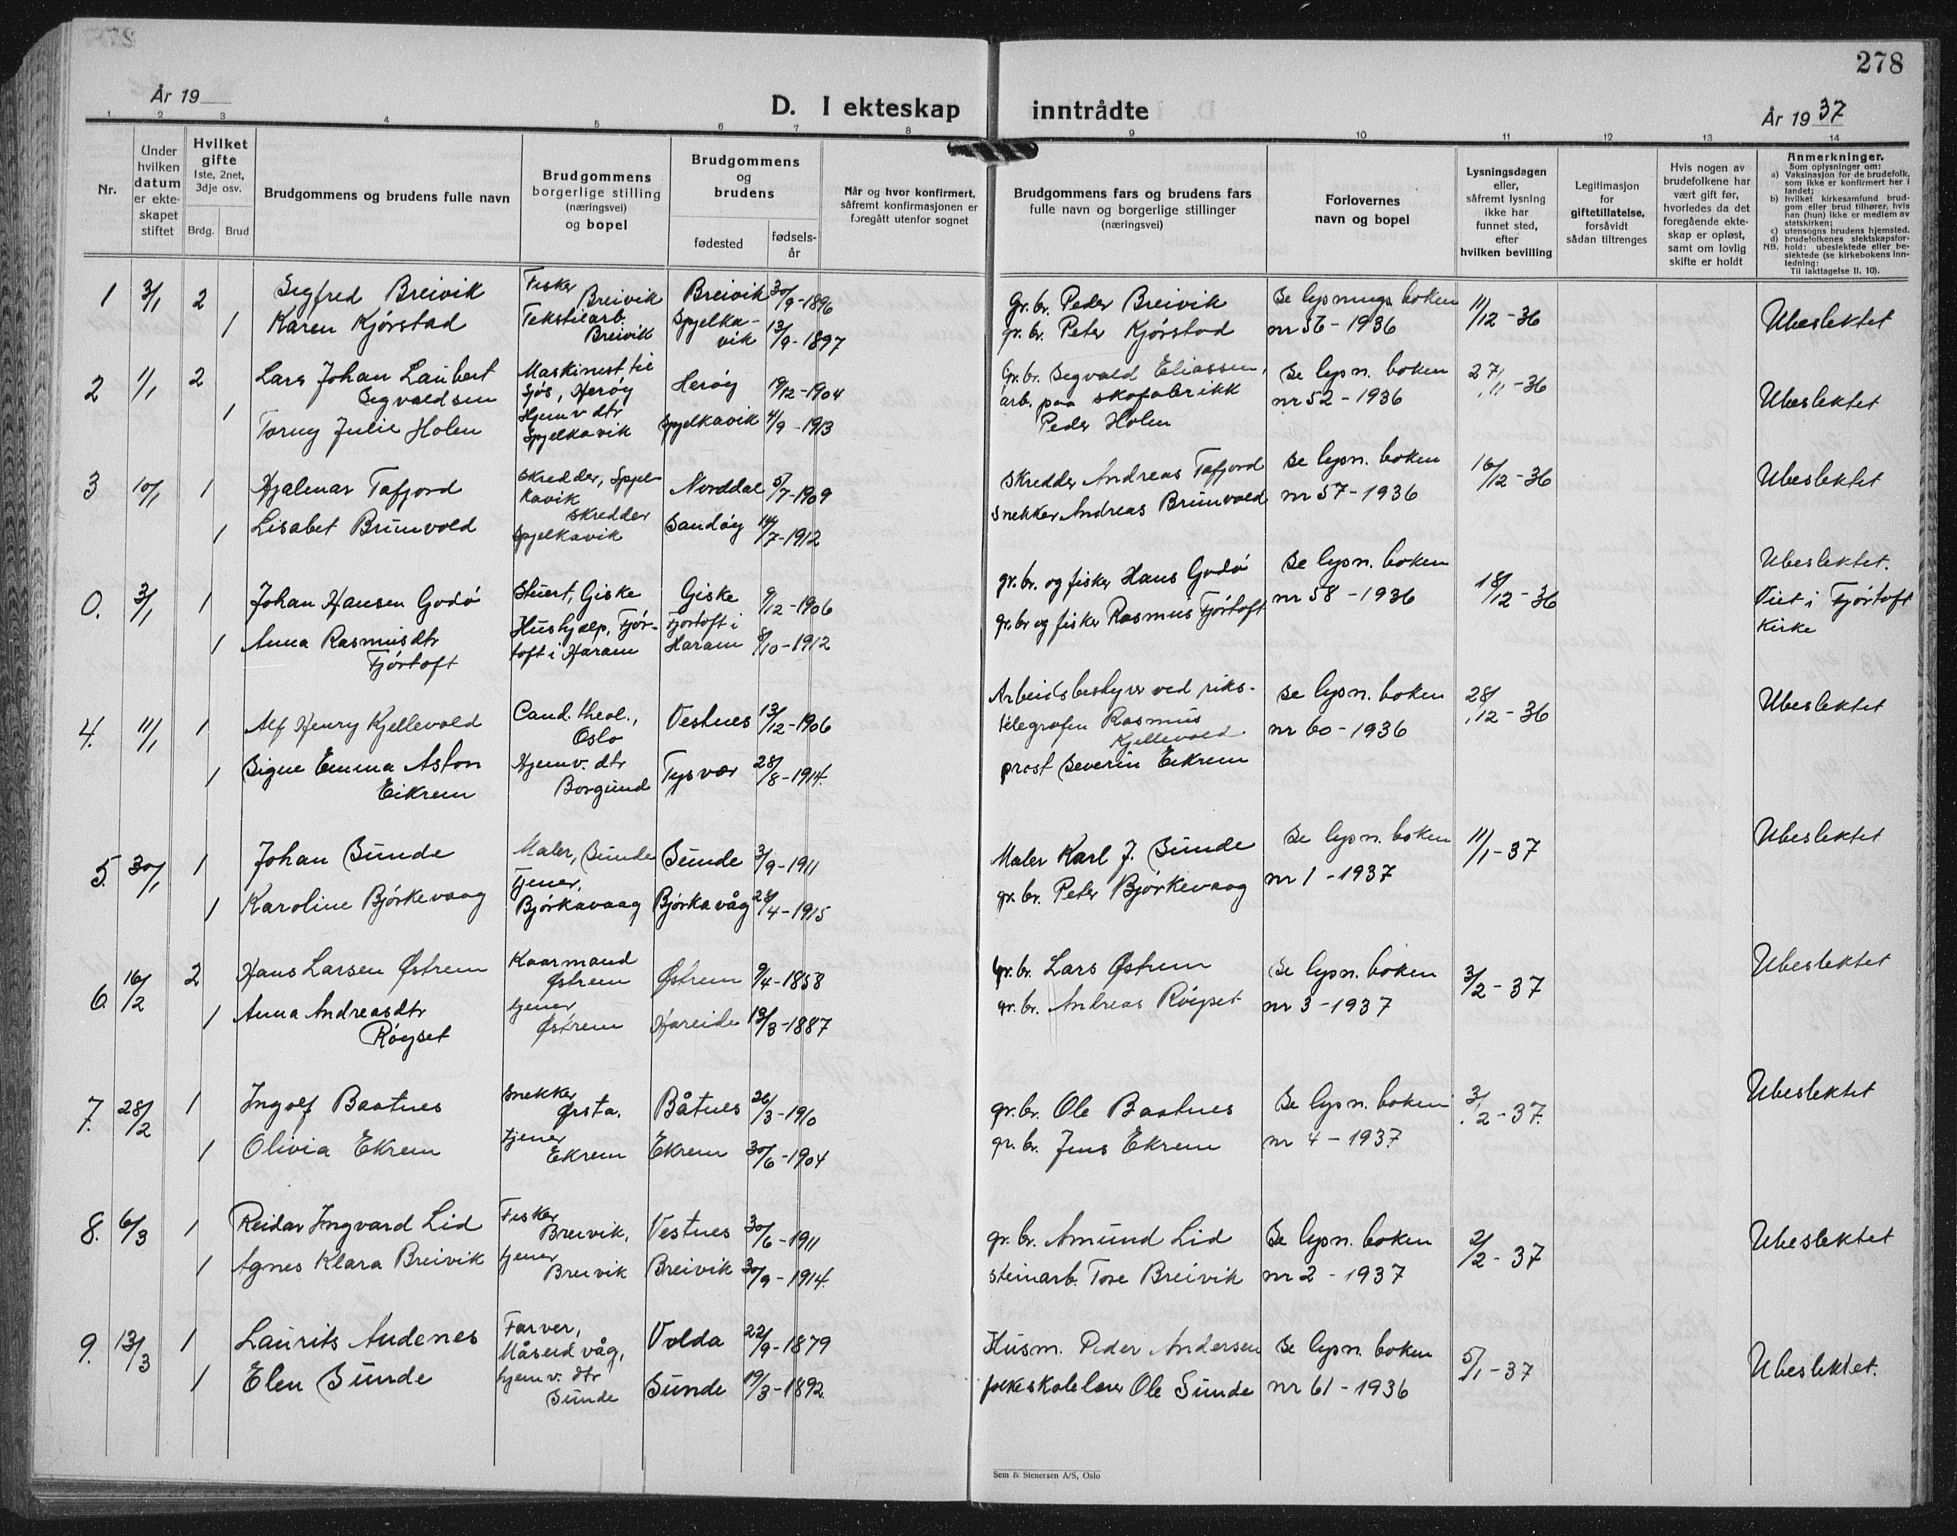 278
År 19
D. I ekteskap inntrådte
År 1937
1 2 3 4 5 6 7 8 9 10 11 12 13 14
Nr.
Under hvilken datum er ekteskapet stiftet
Hvilket gifte 1ste, 2net, 3dje osv.
Brdg. Brud
Brudgommens og brudens fulle navn
Brudgommens borgerlige stilling (næringsvei) og bopel
Brudgommens og brudens
fødested
fødselsår
Når og hvor konfirmert, såfremt konfirmasjonen er foregått utenfor sognet
Brudgommens fars og brudens fars fulle navn og borgerlige stillinger (næringsvei)
Forlovernes navn og bopel
Lysningsdagen eller, såfremt lysning ikke har funnet sted, efter hvilken bevilling
Legitimasjon for giftetillatelse, forsåvidt sådan tiltrenges
Hvis nogen av brudefolkene har vært gift før, hvorledes da det foregående ekteskap er opløst, samt om lovlig skifte er holdt
Anmerkninger.
Som oplysninger om:
a) Vaksinasjon for de brudefolk, som ikke er konfirmert her i landet;
b) hvilket kirkesamfund brudgom eller brud tilhører, hvis han (hun) ikke er medlem av statskirken;
c) utensogns brudens hjemsted.
d) brudefolkenes slektskapsforhold: ubeslektede eller beslektede (se kirkebokens innledning:
NB.
Til iakttagelse II. 10).
1 3/1 2 Sigfred Breivik Fisker Breivik Breivik 30/9-1896 gr. br. Peder Breivik Se lysnings boken 11/12-36 Ubeslektet
1 Karen Kjørstad Tekstilarb. Breivik Spjelkavik 13/9-1897 gr. br. Peter Kjørstad nr 56-1936
2 1/1 2 Lars Johan Laubert Sigvaldsen Maskinist til sjøs, Herøy Herøy 19/12-1904 Gr. br. Sigvald Eliassen, Se lysn. boken 27/11-36 Ubeslektet
1 Torny Julie Holen Hjemv. dtr Spjelkavik Spjelkavik 4/9-1913 arb. paa skofabrikk Peder Holen nr 52-1936
3 10/1 1 Hjalmar Tafjord Skredder, Spjelkavik Norddal 5/7-1909 Skredder Andreas Tafjord Se lysn. boken 16/12-36 Ubeslektet
1 Lisabet Brunvold Skredder Spjelkavik Sandøy 14/7-1912 Snekker Andreas Brunvold nr 57-1936
0. 3/1 1 Johan Hansen Godø Stuert, Giske Giske 9/12-1906 gr. br. og fisker Hans Godø Se lysn. boken 18/12-36 Ubeslektet.
1 Anna Rasmusdtr Fjørtoft Hushjælp, Fjørtoft i Haram Fjørtoft i Haram 8/10-1912 gr. br og fisker Rasmus Fjørtoft nr 58-1936 Viet i Fjørtoft Kirke
4. 11/1 1 Alf Henry Kjellevold Cand. theol., Oslo Vestnes 13/12-1906 Arbeidsbestyrer ved rikstelegrafen Rasmus Kjellevold Se lysn. boken 28/12-36 Ubeslektet
1 Signe Emma Aston Eikrem Hjemv. dtr Borgund Tysvær 28/8-1914. prost Severin Eikrem nr 60-1936
5. 30/1 1 Johan Sunde Maler, Sunde Sunde 3/9-1911 Maler Karl J. Sunde Se lysn. boken 11/1-37 Ubeslektet
1 Karoline Bjørkevaag tjener, Bjørkavaag Bjørkavåg 28/4-1915 gr. br. Peter Bjørkevaag nr 1-1937
6. 16/2 2 Hans Larsen Østrem Kaarmand Østrem Østrem 9/4-1858 Gr. br. Lars Østrem Se lysn. boken 3/2-37 Ubeslektet
1 Anna Andreasdtr Røyset tjener Østrem Hareide 13/3-1887 gr. br. Andreas Røyset nr 3-1937
7. 28/2 1 Ingolf Baatnes Snekker Ørsta. Båtnes 26/3-1910 gr. br. Ole Baatnes Se lysn. boken 3/2-37. Ubeslektet
1 Olivia Ekrem tjener Ekrem Ekrem 30/6-1904 gr. br. Jens Ekrem nr 4-1937
8. 6/3 1 Reidar Ingvard Lid Fisker Breivik, Vestnes 30/6-1911 gr. br. Amund Lid Se lysn. boken 2/2-37 Ubeslektet
1 Agnes Klara Breivik tjener Breivik Breivik 30/9-1914. steinarb. Tore Breivik nr 2-1937
9. 13/3 1 Laurits Audenes Farver, Måseidvåg, Volda 22/9-1879 Husm. Peder Andersen Se lysn. boken 5/1-37 Ubeslektet.
1 Elen Sunde hjemv. dtr Sunde Sunde 19/3-1892 folkeskolelærer Ole Sunde nr 61-1936
Sem & Stenersen A/S, Oslo